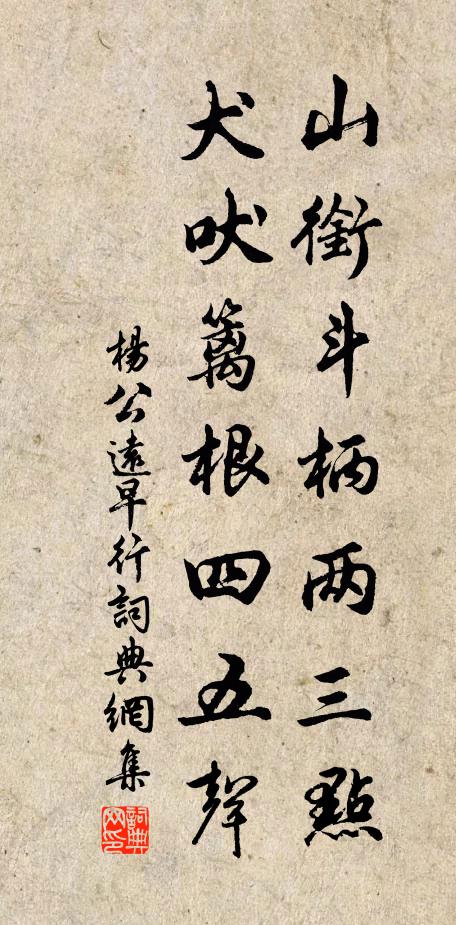 山銜斗柄两三點
犬吠籬根四五聲
楊公遠早行詞典網集
詞典网印